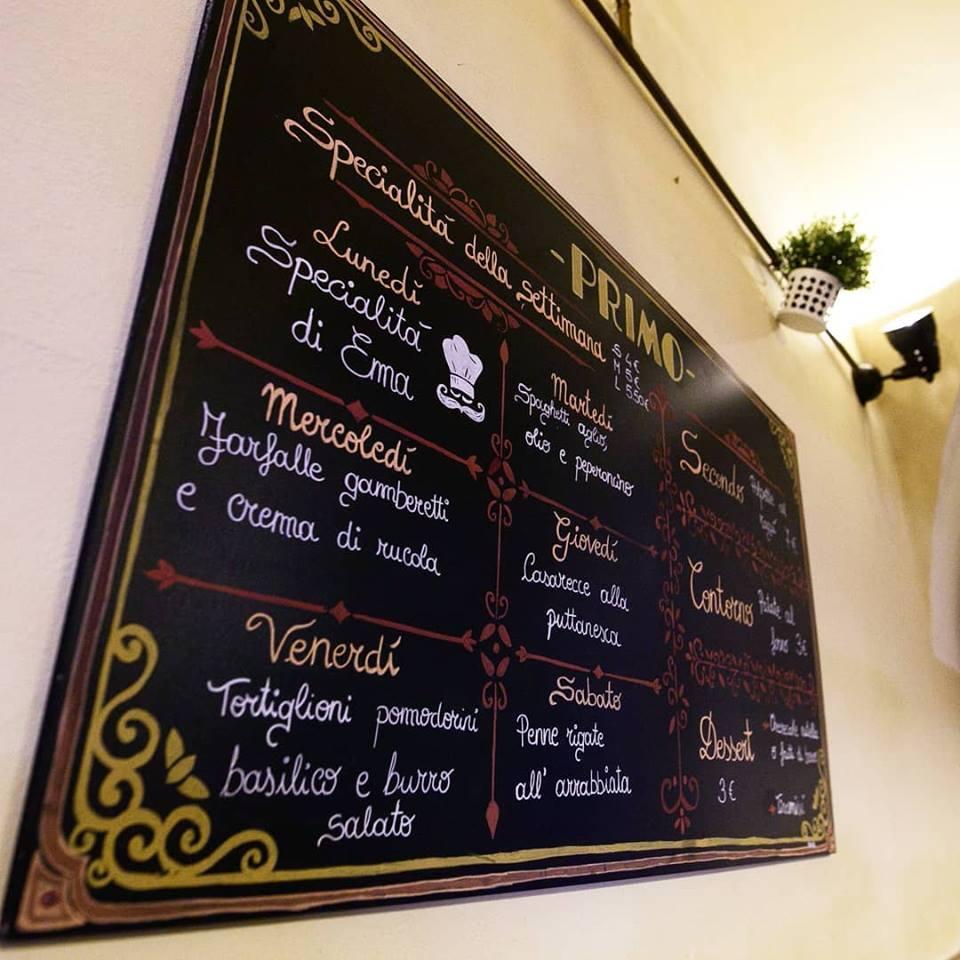 - PRIMO -
Specialità della settimana
S 4€
M 5€
L 5,50€
Lunedí
Specialità
di Erma
Martedí
Spaghetti aglio,
olio e peperoncino
Mercoledí
Farfalle gamberetti
e crema di rucola
Giovedí
Casarecce alla
puttanesca
Venerdí
Tortiglioni pomodorini
basilico e burro
salato
Sabato
Penne rigate
all' arrabbiata
Secondo
al
7€
Contorno
Patate al
forno 3€
Dessert
3€
Cheesecake nutella
o frutti di bosco
Tiramisú